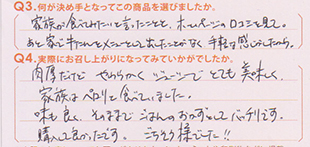 Q3.何が決め手となってこの商品を選びましたか。
家族が食べてみたいと言ったことと、ホームページの口コミを見て。
あと家で牛たんをメニューとして出したことがなく、手軽な感じがしたから。
Q4.実際にお召し上がりになってみていかがでしたか。
肉厚だけど やわらかく ジューシーで とても 美味しく、
家族はペロリと食べていました。
味も良く、そのままで ごはんの おかずとして バッチリです。
購入して良かったです。 ごちそう様でした!!